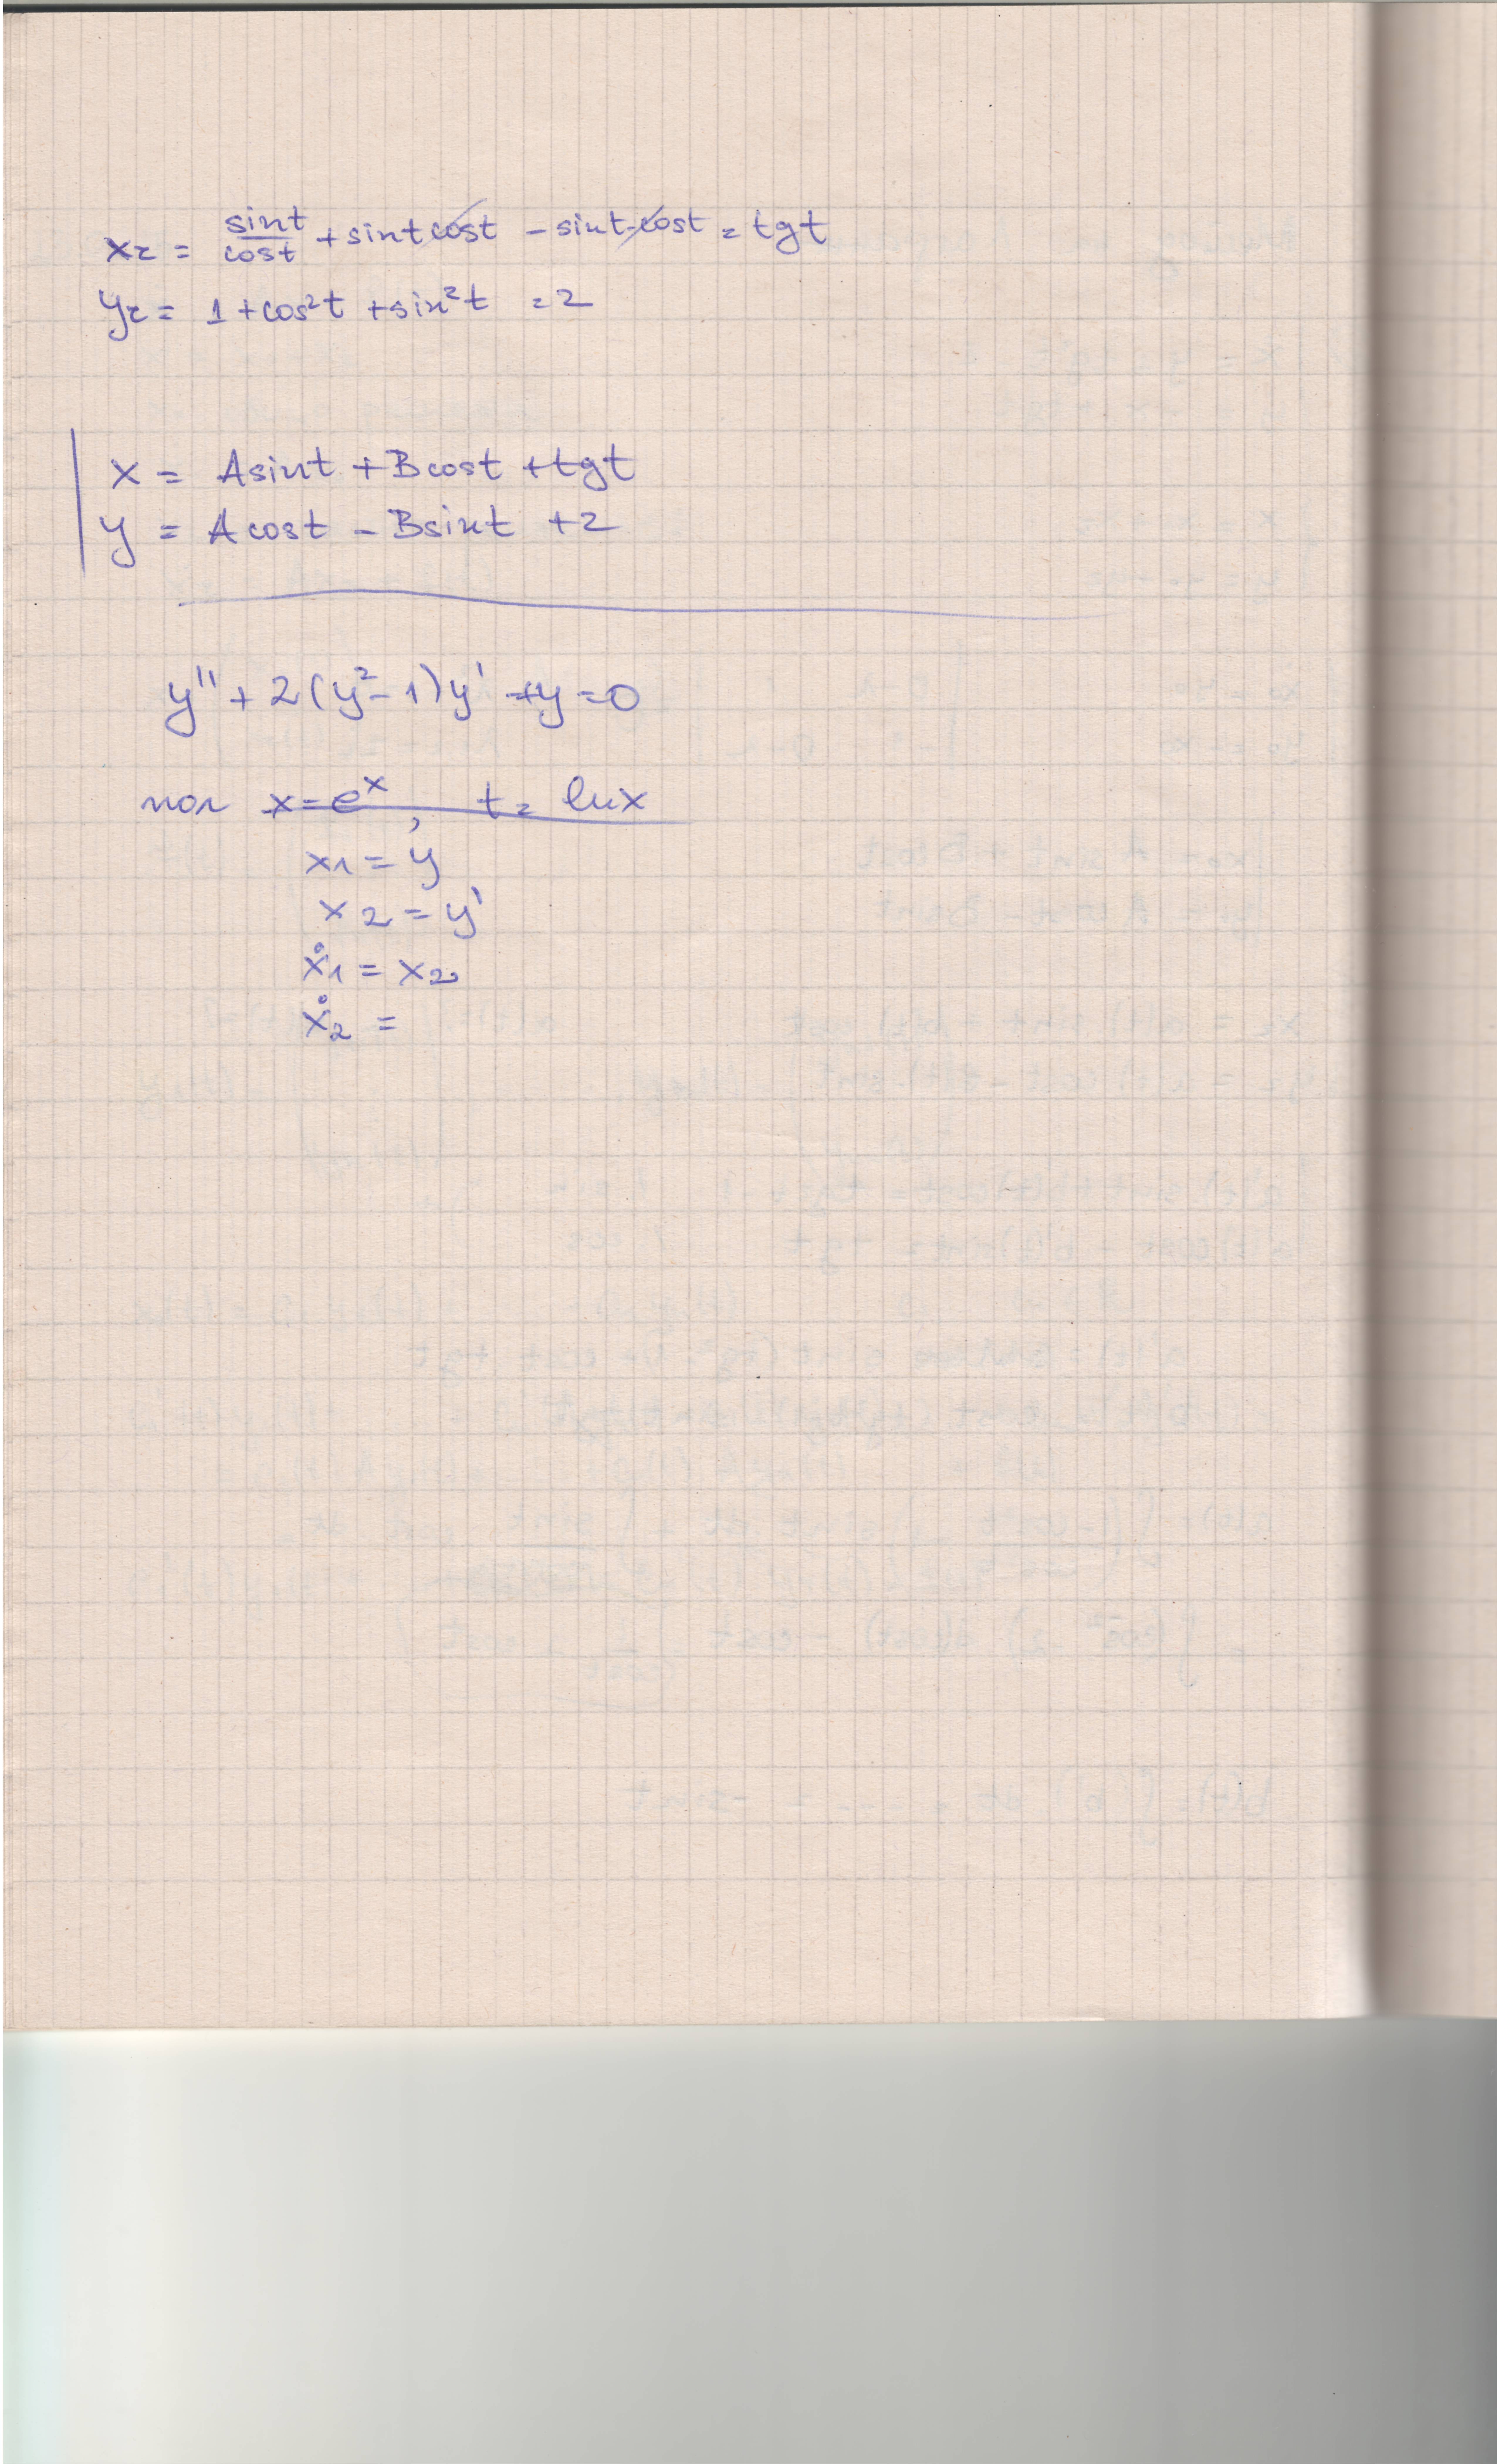 xz = sint/cost + sint cost - sint cost = tgt
yz = 1 + cos²t + sin²t = 2
x = Asint + Bcost + tgt
y = Acost - Bsint + 2
y'' + 2(y² - 1)y' + y = 0
пол x = eˣ, t = lnx
x1 = y
x2 = y'
ẋ1 = x2
ẋ2 =